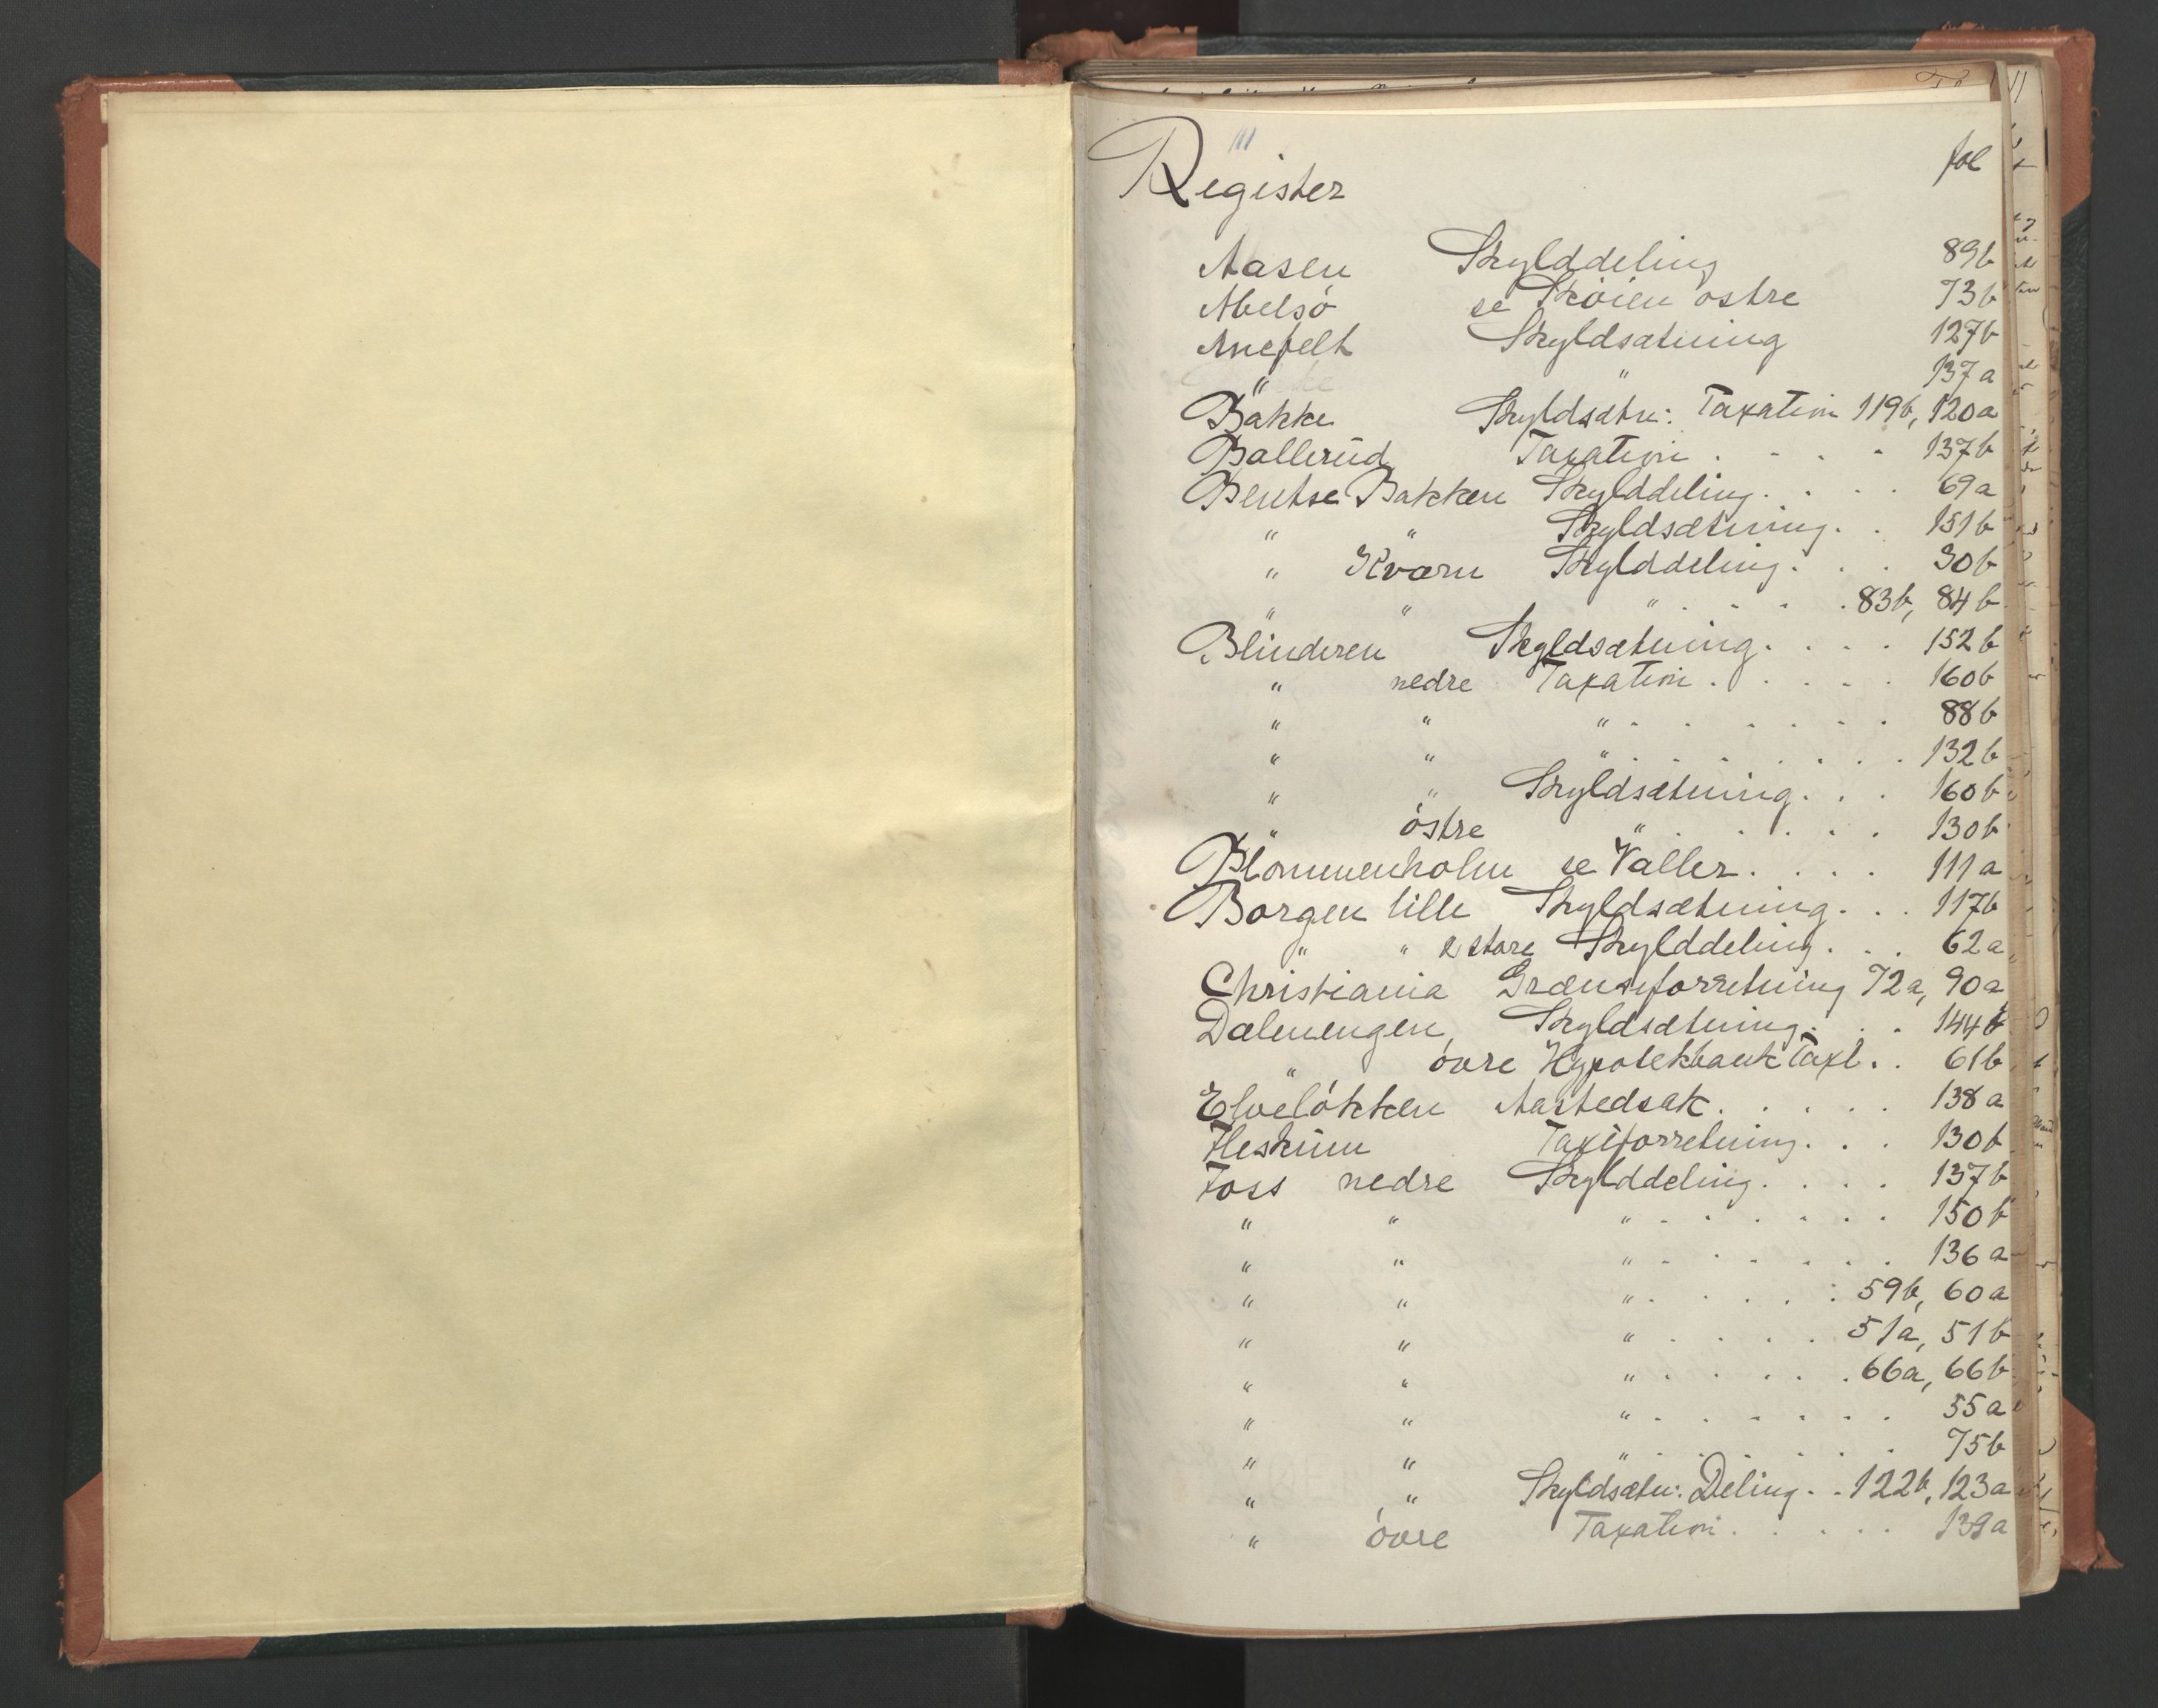 Register fol
Aasen Skylddeling 89b
Abelsö se Skøien østre 73b
Anefelt Skyldsætning 127b
" " 137a
Bakke Skyldsætn: Taxation 119b, 120a
Ballerud Taxation . . . . 137b
Bentse Bakken Skylddeling. . . . 69a
" " Skyldsætning. . 151b
" Kværn Skylddeling. . . 30b
" " " . . . . 83b, 84b
Blinderen Skyldsætning. . . . 152b
" nedre Taxation . . . . . 160b
" " " . . . . . . . 88b
" " " . . . . . . . . 132b
" " Skyldsætning. . . 160b
" östre " . . . . . . 130b
Blommenholm se Valler. . . . 111a
Borgen lille Skyldsætning. . . 117b
" " & store Skylddeling. . . 62a
Christiania Grændseforretning 72a, 90a
Dælenengen Skyldsætning. . . 144b
" övre Hypotekbank Taxt. . 61b
Elvelökken Aastedsak. . . . . 138a
Fleskum Taxtforretning. . . 130b
Foss nedre Skylddeling. . . . 137b
" " " . . . . . . . 150b
" " " . . . . . . . 136a
" " " . . . . . 59b, 60a
" " " . . . . . 51a, 51b
" " " . . . . . . 66a, 66b
" " " . . . . . . . 55a
" " " . . . . . . 75b
" " Skyldsætn: Deling. . 122b, 123a
" övre Taxation. . . . . 139a